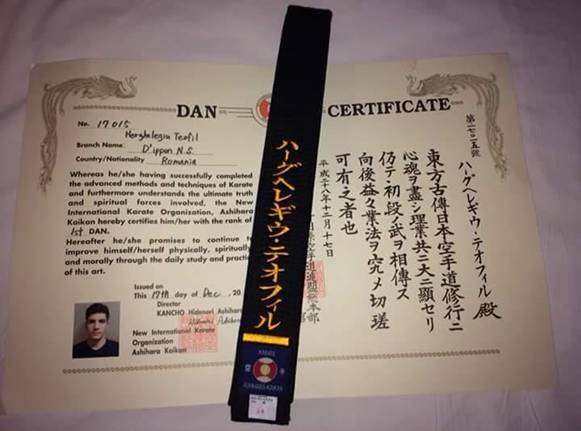 DAN
CERTIFICATE
No. 17015
Herghelegiu Teofil
Branch Name: D'ippon N.S.
Country/Nationality Romania
Whereas he/she having successfully completed
the advanced methods and techniques of Karate
and furthermore understands the ultimate truth
and spiritual forces involved, the New
International Karate Organization, Ashihara
Kaikan hereby certifies him/her with the rank of
1st DAN.
Hereafter he/she promises to continue to
improve himself/herself physically, spiritually
and morally through the daily study and practi
of this art.
Issued on
This 17th day of Dec., 20
Director
KANCHO Hidenori Ashihara
New International Karate
Organization
Ashihara Kaikan
ハーグヘレギウ・テオフィル
第一七〇一五號
ハーグヘレギウ・テオフィル 殿
東方古傳日本空手道修行ニ
心魂ヲ盡シ理業共ニ大ニ顕セリ
仍テ初段ノ武ヲ相傳ス
向後益々業法ヲ究メ切磋
可有之者也
平成二十八年十二月十七日